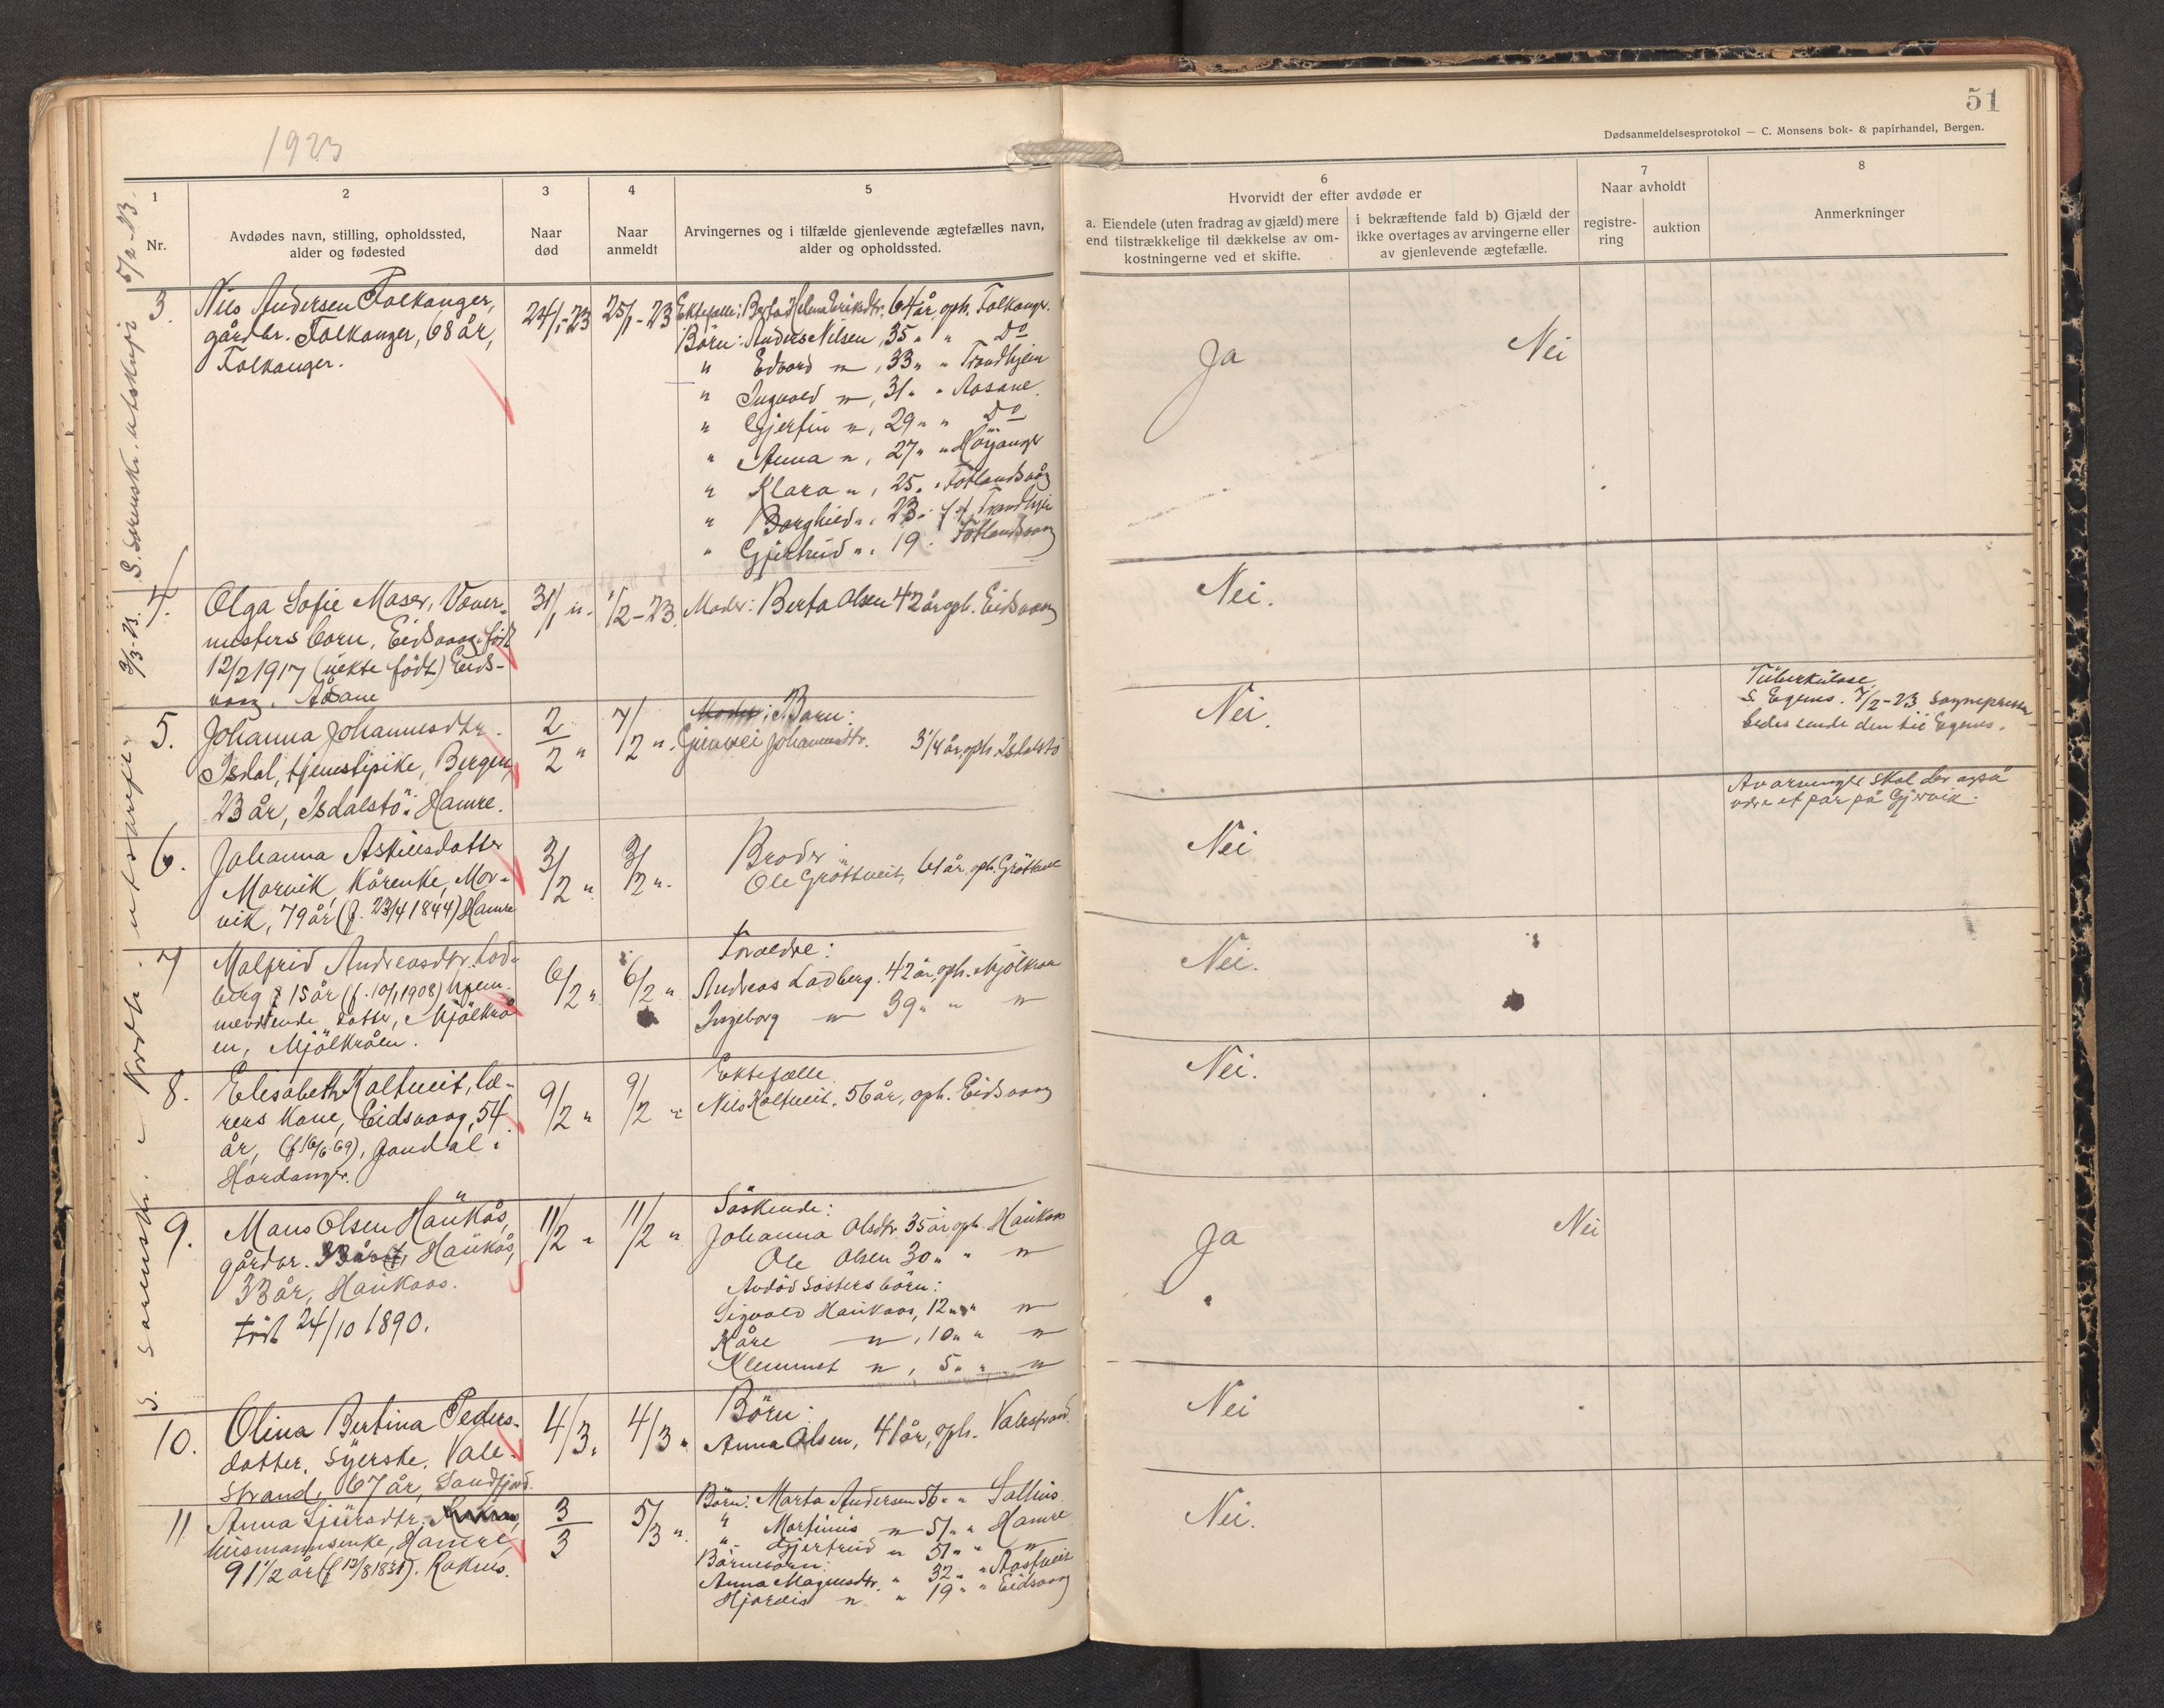 1923
51
Dødsanmeldelsesprotokol — C. Monsens bok- & papirhandel, Bergen.
1
Nr.
2
Avdødes navn, stilling, opholdssted,
alder og fødested
3
Naar
død
4
Naar
anmeldt
5
Arvingernes og i tilfælde gjenlevende ægtefælles navn,
alder og opholdssted.
6
Hvorvidt der efter avdøde er
a. Eiendele (uten fradrag av gjæld) mere
end tilstrækkelige til dækkelse av om-
kostningerne ved et skifte.
i bekræftende fald b) Gjæld der
ikke overtages av arvingerne eller
av gjenlevende ægtefælle.
7
Naar avholdt
registre-
ring
auktion
8
Anmerkninger
3.
Nils Andersen Folkanger,
gårdbr. Folkanger, 68 år,
Folkanger.
24/1-23
25/1-23
Ektefælle: Berta Helena Eriksdtr. 64 år, oph. Folkangr.
Börn: Anders Nilsen, 35 " " Do
" Edvard " , 33 " " Trondhjem
" Ingvald " , 31 " " Aasane.
" Gjerfin " , 29 " " Do
" Anna " , 27 " " Höyanger
" Klara " , 25 " " Fotlandsvåg
" Borghild " , 23 " Trondhjem
" Gjertrud " , 19 " Fotlandsvaag
Ja
Nei
4.
Olga Sofie Maser, Væver-
mesters barn, Eidsvaag, født
12/2 1917 (uekte født) Eids-
vaag, Åsane
31/1 "
1/2-23.
Moder: Berta Olsen 42 år oph. Eidsvaag
Nei.
5.
Johanna Johannesdtr.
Isdal, tjenestepike, Bergen,
23 år, Isdalstö i Hamre.
2/2 "
7/2 "
Moder: Barn:
Johannesdtr. 3 1/4 år, oph. Isdalstö
Nei.
Tuberkulose
S. Egenes. 7/2-23
bedes sende den til Egenes.
6.
Johanna Askilsdatter
Morvik, kårenke, Mor-
vik, 79 år (f. 23/4 1844) Hamre
3/2 "
3/2 "
Broder:
Ole Gröttveit, 61 år, oph. Gröttveit
Nei
Av arvinger skal der også
være et par på Gjervik.
7
Malfrid Andreasdtr. Lad-
berg 15 år (f. 10/1 1908) hjem-
meværende datter, Mjölkrå-
en, Mjölkråen.
6/2 "
6/2 "
Foraeldre:
Andreas Ladberg. 42 år, oph. Mjölkraa
Ingeborg " 39 " " "
Nei.
8.
Elisabeth Kaltveit, læ-
rers kone, Eidsvaag, 54
år, (f. 16/6 69), Jondal i
Hardanger.
9/2 "
9/2 "
Ektefælle.
Nils Kaltveit. 56 år, oph. Eidsvaag
Nei.
9.
Mans Olsen Haukås,
gårdbr. 33 år, Haukås,
33 år, Haukaas.
född 24/10 1890.
11/2 "
11/2 "
Söskende:
Johanna Olsdtr. 35 år oph. Haukaas
Ole Olsen 30 " " "
Avdöd sösters börn:
Sigvald Haukaas, 12 " " "
Kåre " , 10 " " "
Klemmet " , 5 " " "
Ja
Nei
10.
Olina Bertina Peders-
datter, Syerske, Vale-
strand, 67 år, Sandfjord.
4/3 "
4/3 "
Börn:
Anna Olsen, 41 år, oph. Valestrand.
Nei
11
Anna Sjursdtr.
husmannsenke, Hamre,
91 1/2 år (f 12/8 1831). Raknes.
3/3
5/3 "
Börn: Marta Andersen 56 " " Salhus
" Martinus " 51 " " Hamre
" Gjertrud " 51 " " "
Börnebörn:
Anna Magnusdtr. " 32 " " Aastveit
Hjördis " " 19 " " Eidsvaag
Nei.